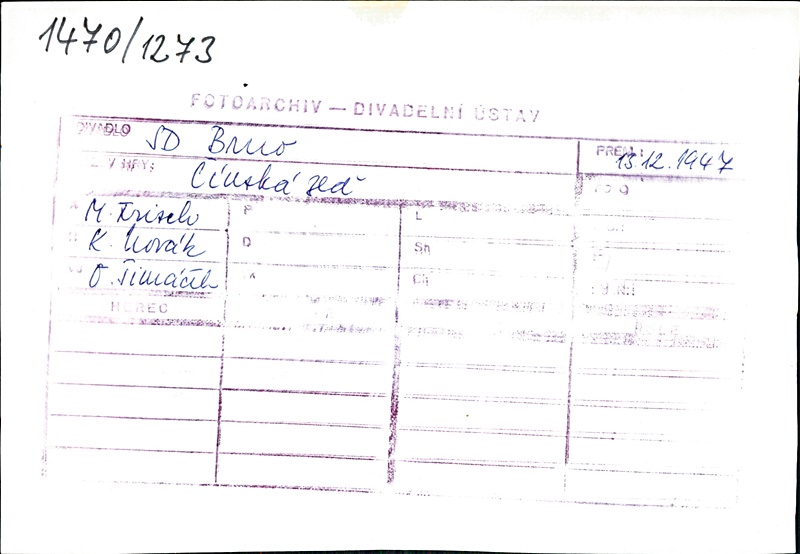 1470/1273
FOTOARCHIV — DIVADELNÍ ÚSTAV
DIVADLO SD Brno PREM.: 13.12.1947
HRY: Čínská zeď
M. Frisch P L
K. Novák D Sn
O. Šimáček Ch
HEREC